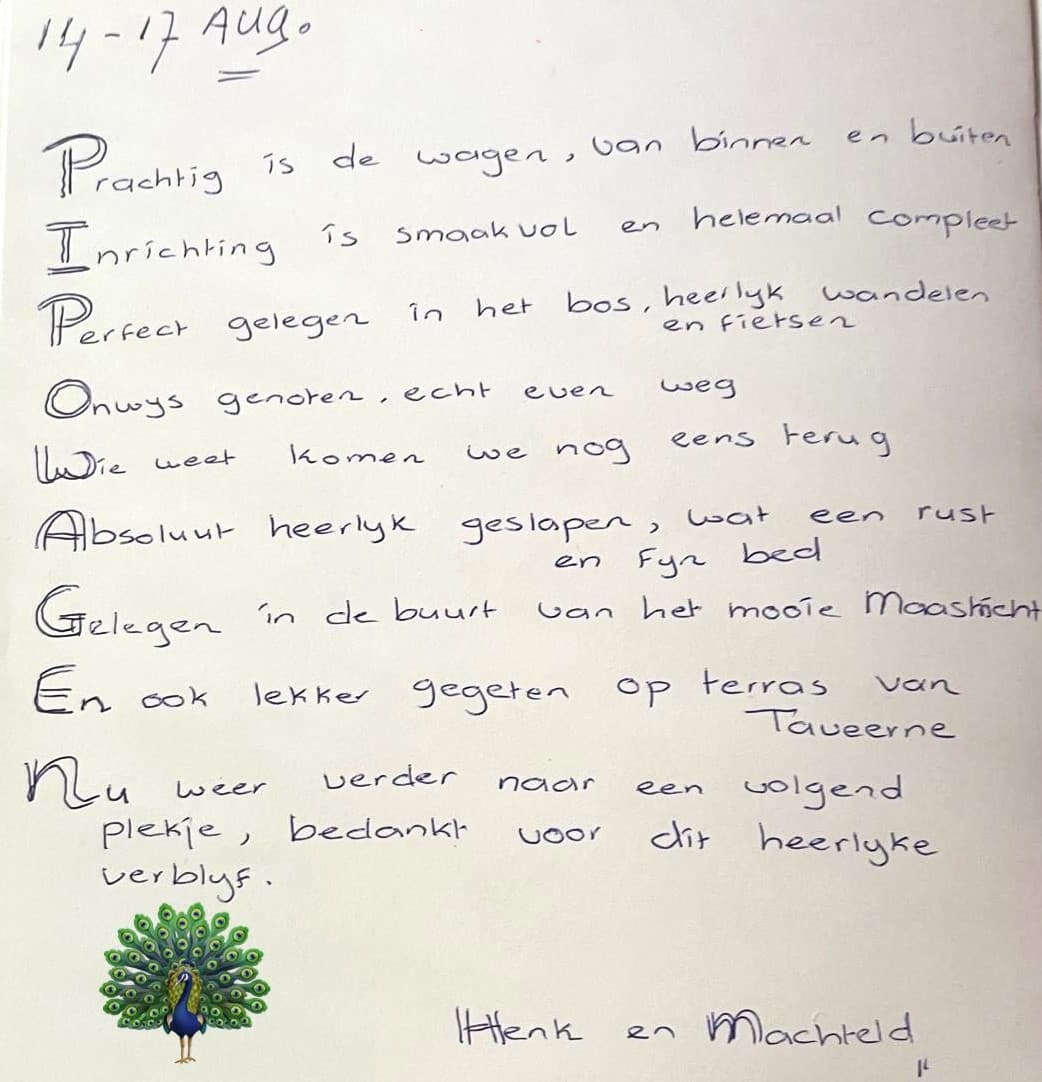 14-17 Aug.
Prachtig is de wagen, van binnen en buiten
Inrichting is smaakvol en helemaal compleet
Perfect gelegen in het bos, heerlyk wandelen
en fietsen
Onwys genoten, echt even weg
Wie weet komen we nog eens terug
Absoluut heerlyk geslapen, wat een rust
en Fyn bed
Gelegen in de buurt van het mooie Maastricht
En ook lekker gegeten op terras van
Taveerne
Nu weer verder naar een volgend
plekje, bedankt voor dit heerlyke
verblyf.
Henk en Machteld